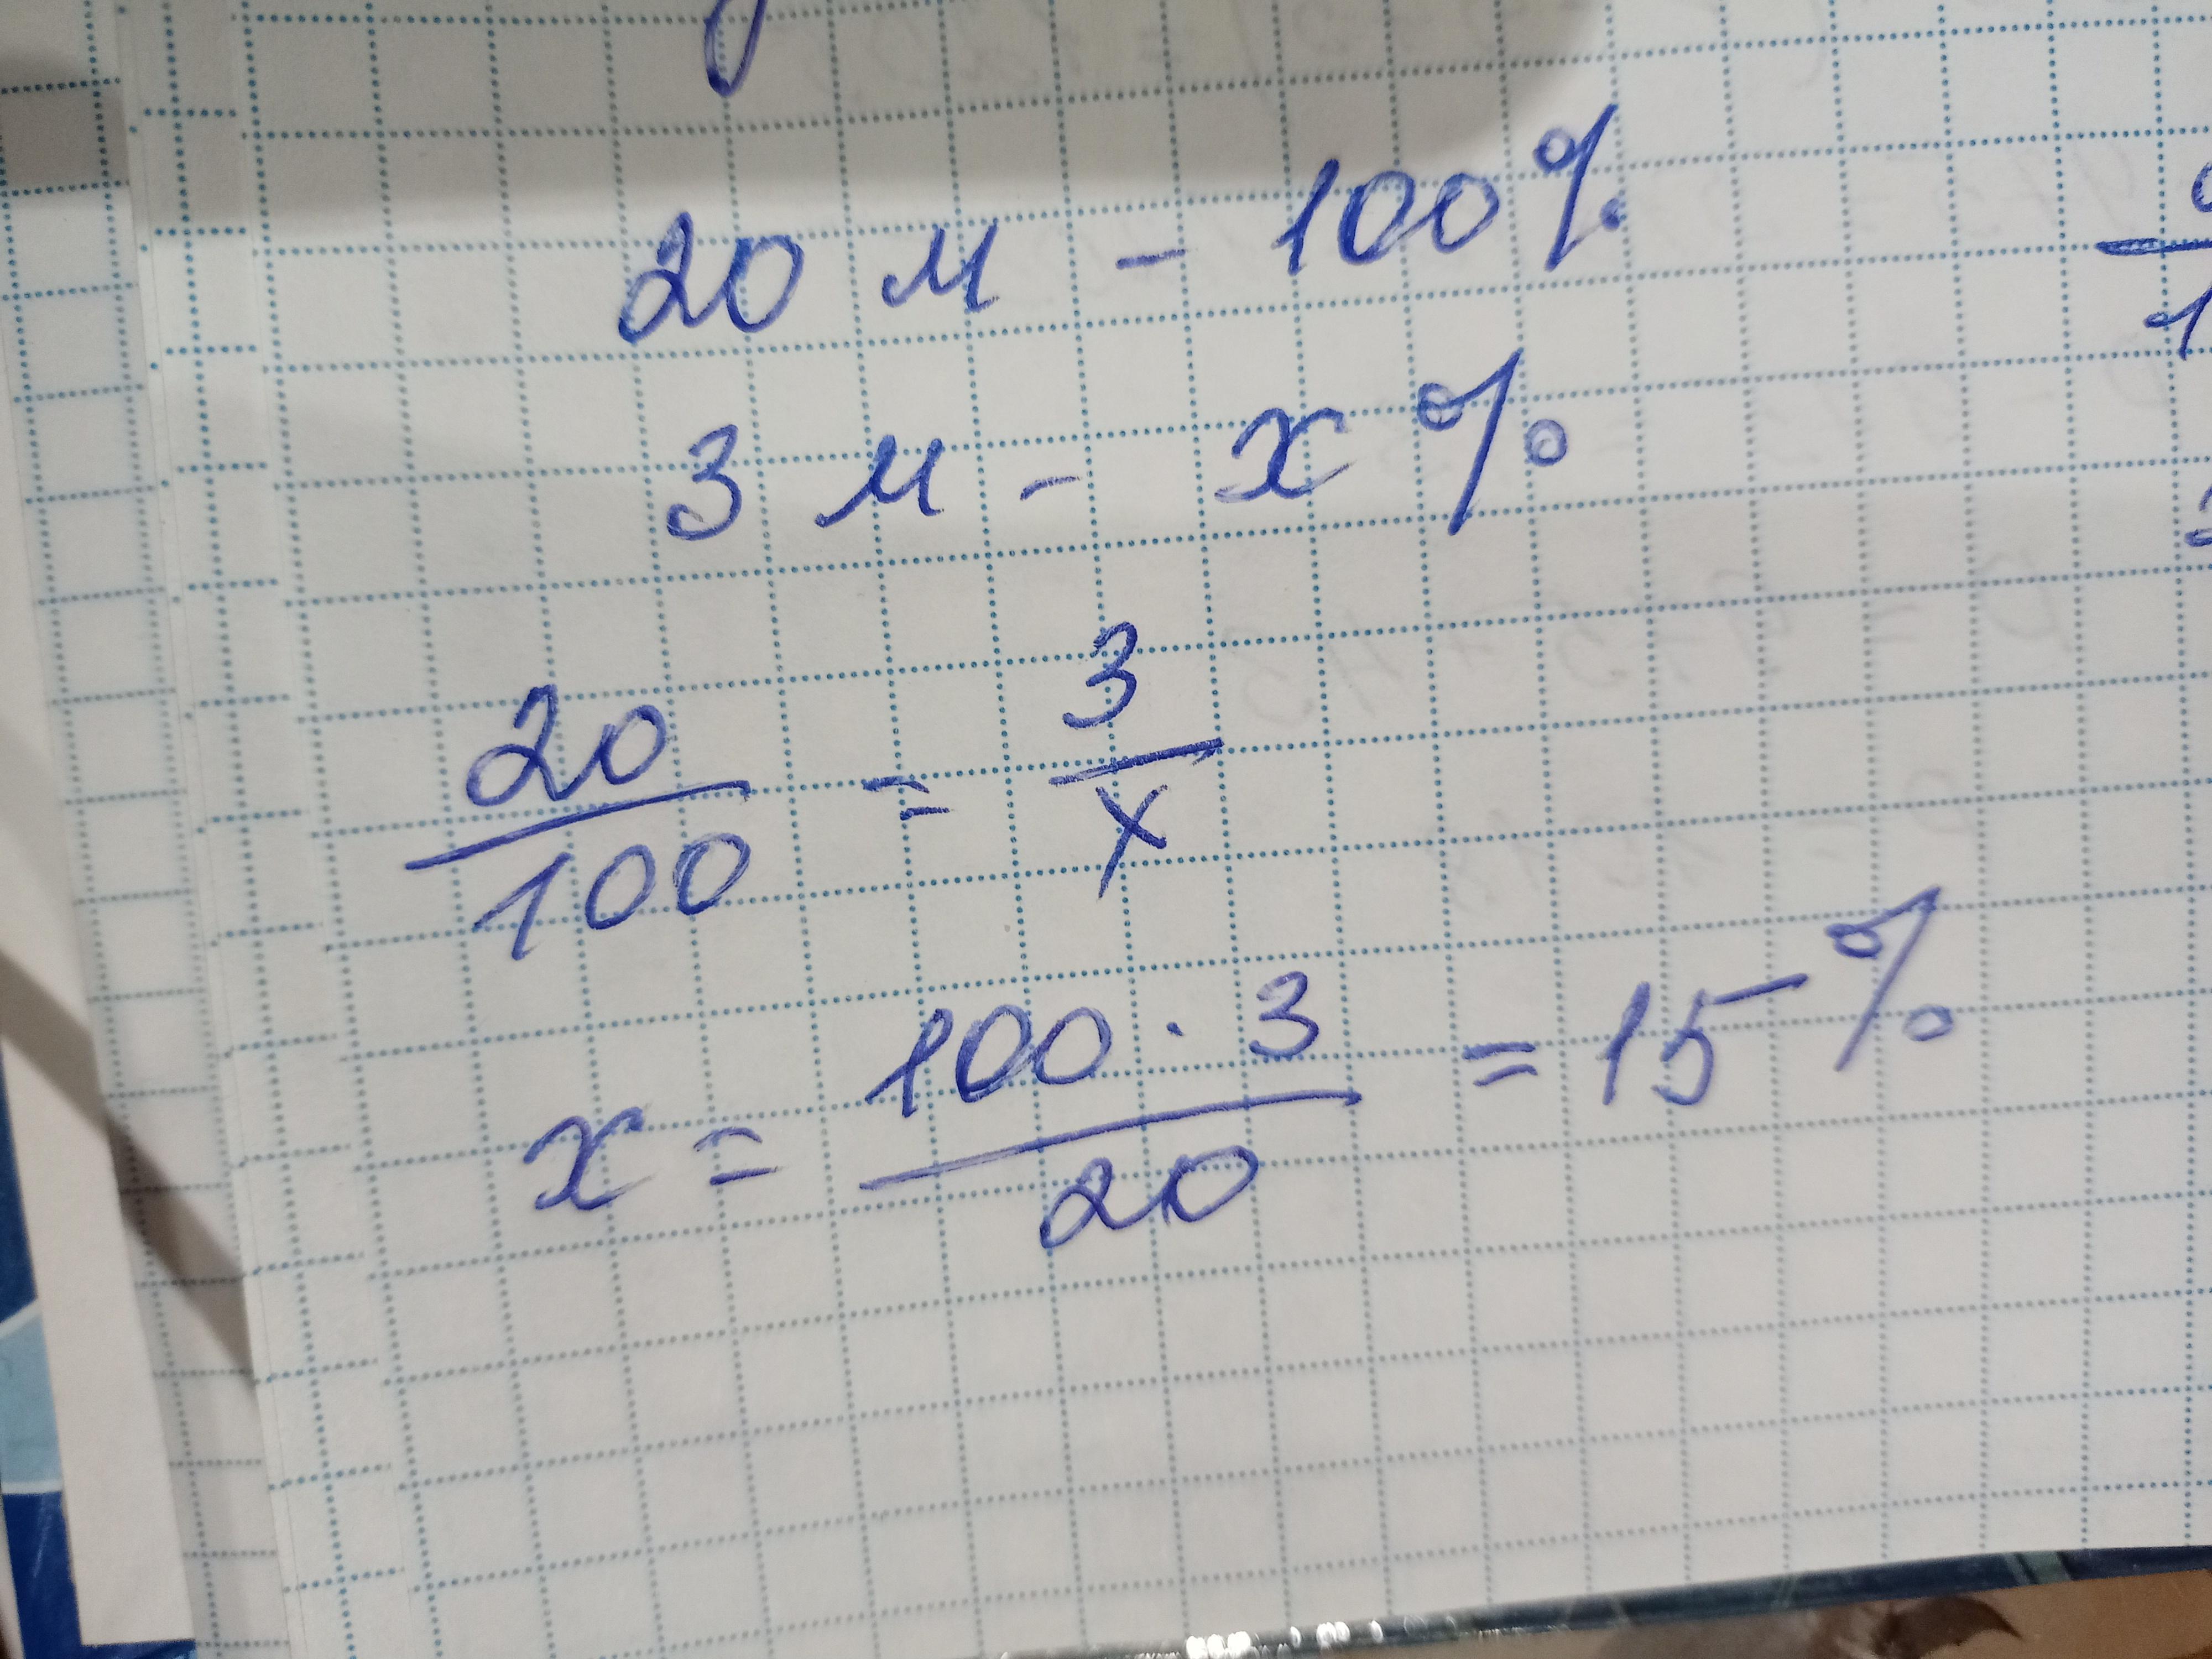 20 м - 100%
3 м - x%
20/100 = 3/x
x = 100 · 3/20 = 15%